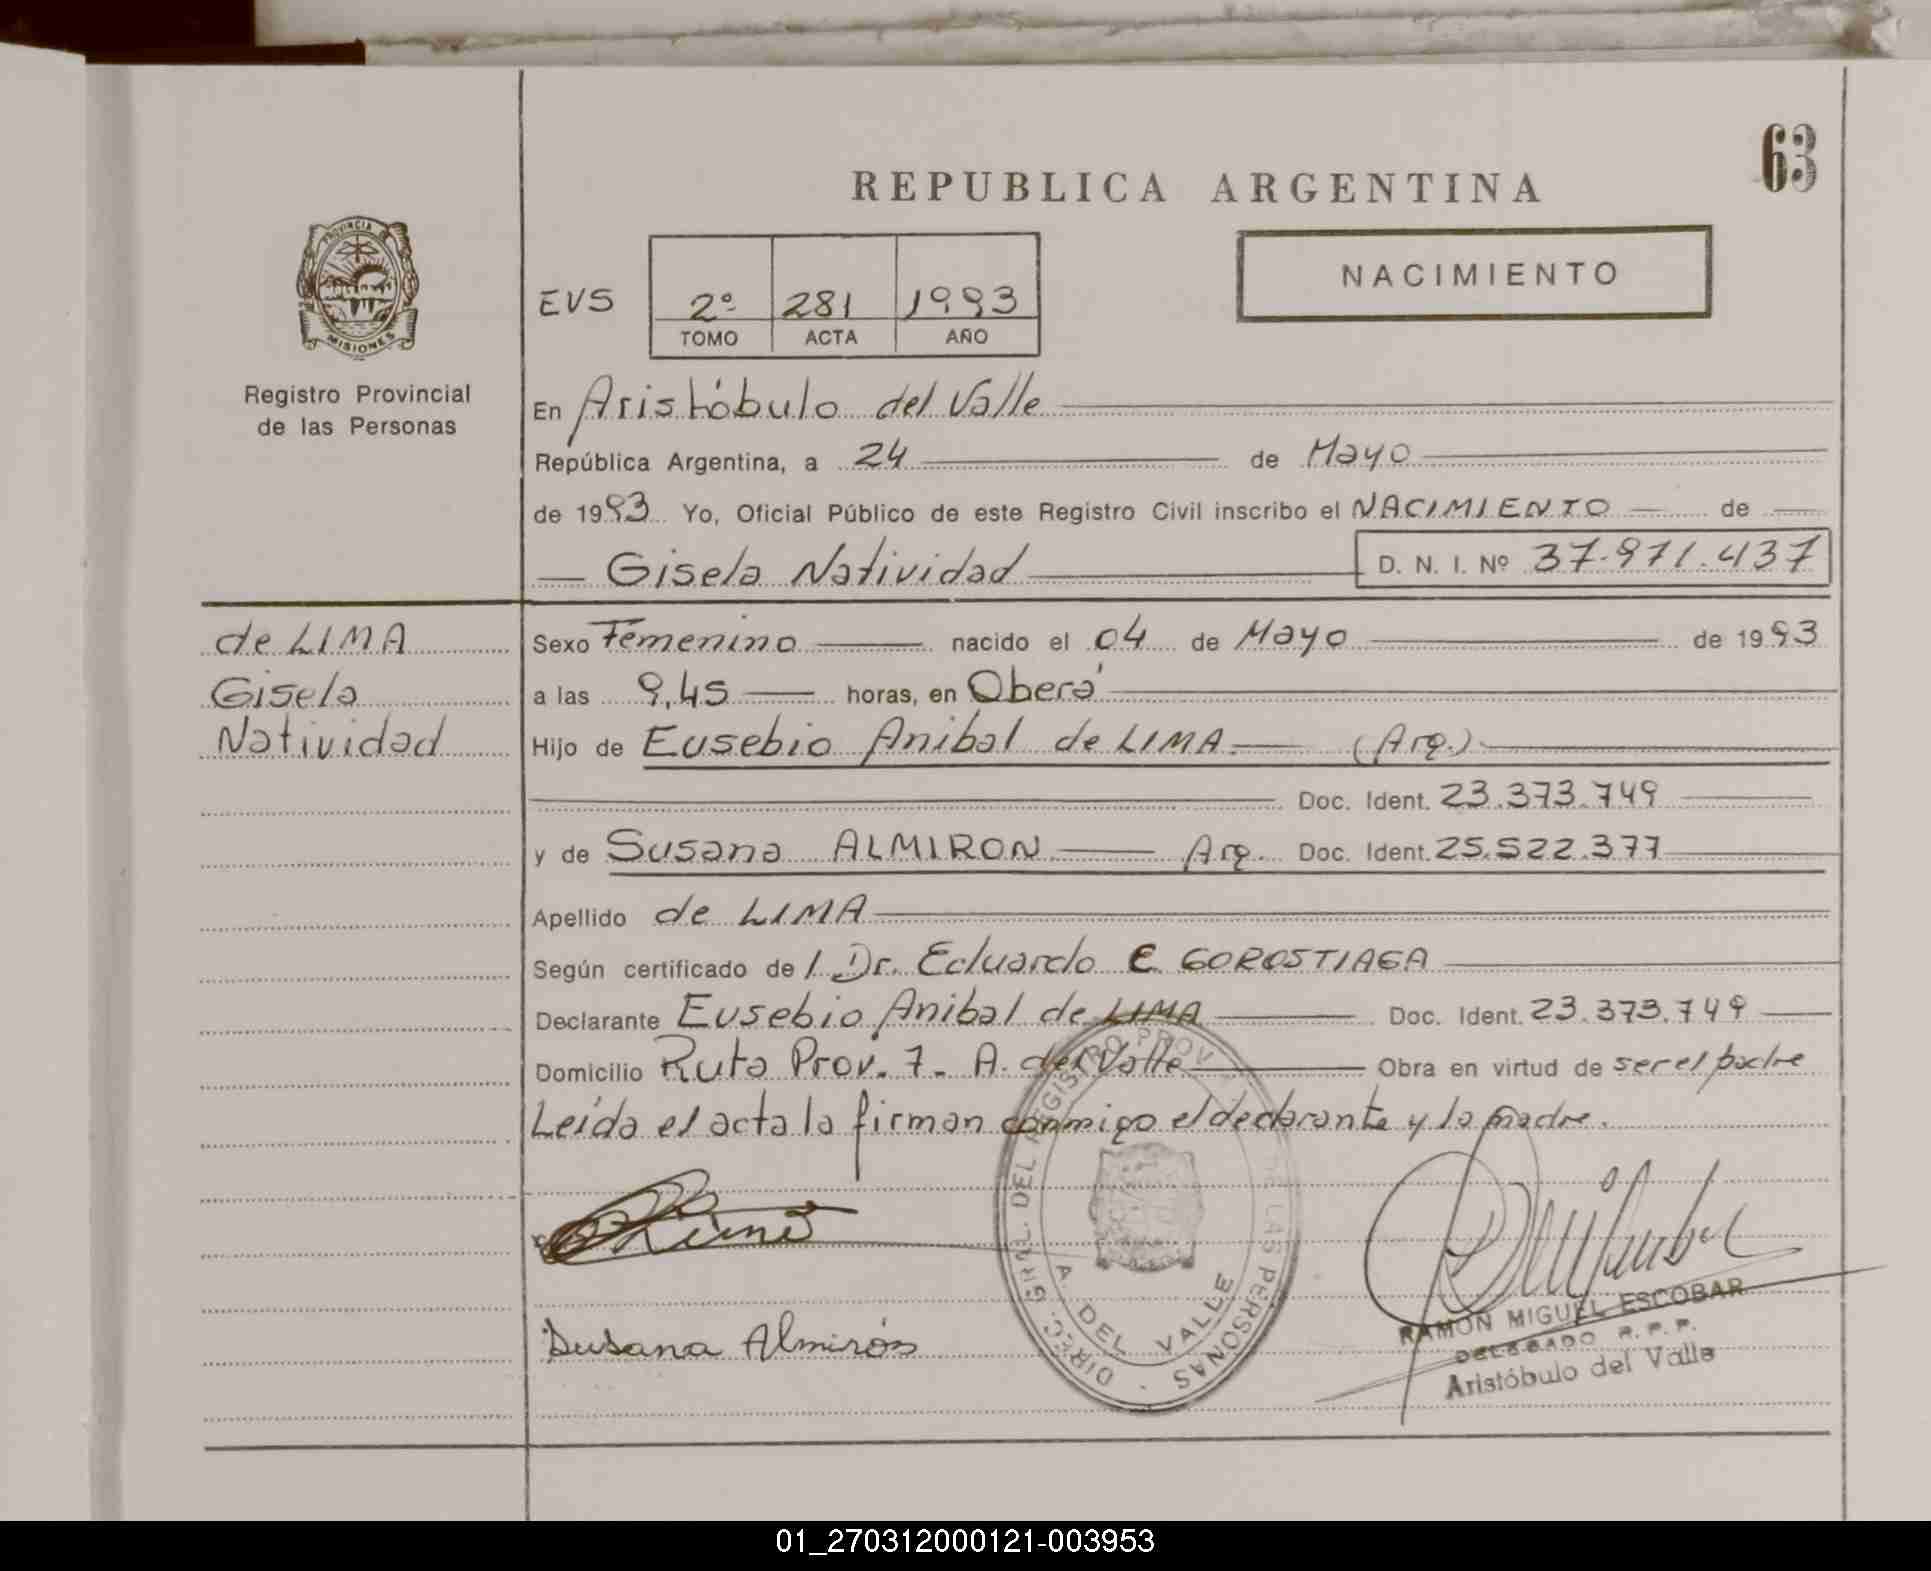 63
REPUBLICA ARGENTINA
PROVINCIA DE
MISIONES
Registro Provincial
de las Personas
NACIMIENTO
EVS 2º 281 1993
TOMO ACTA AÑO
En Aristóbulo del Valle
República Argentina, a 24 de Mayo
de 1993 Yo, Oficial Público de este Registro Civil inscribo el NACIMIENTO de
Gisela Natividad D. N. I. Nº 37.971.437
de LIMA
Gisela
Natividad
Sexo Femenino nacido el 04 de Mayo de 1993
a las 9,45 horas, en Oberá
Hijo de Eusebio Anibal de LIMA (Arg.)
Doc. Ident. 23.373.749
y de Susana ALMIRON Arg. Doc. Ident. 25.522.377
Apellido de LIMA
Según certificado de l Dr. Eduardo C GOROSTIAGA
Declarante Eusebio Anibal de LIMA Doc. Ident. 23.373.749
Domicilio Ruta Prov. 7 - A. del Valle Obra en virtud de ser el padre
Leída el acta la firman conmigo el declarante y la madre.
Susana Almirón
DIREC. GRAL. DEL REGISTRO PROV. DE LAS PERSONAS
A. DEL VALLE
RAMON MIGUEL ESCOBAR
DELEGADO R. P. P.
Aristóbulo del Valle
01_270312000121-003953